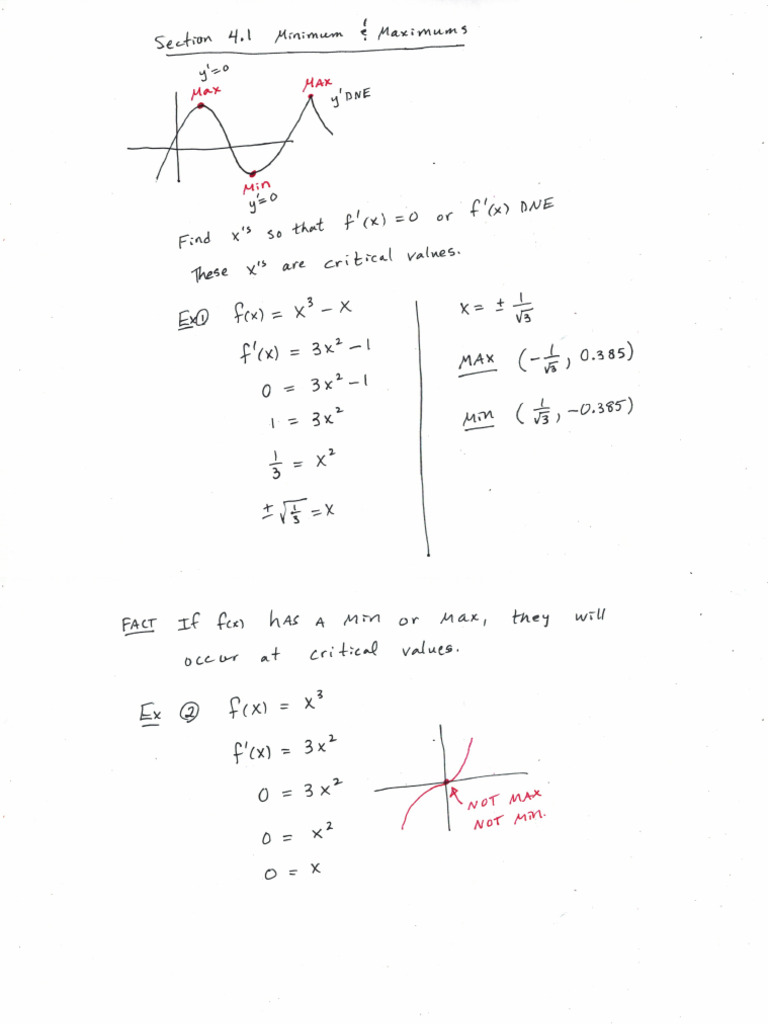 Section 4.1 Minimum & Maximums
y'=0
Max
MAX
y' DNE
Min
y'=0
Find x's so that f'(x) = 0 or f'(x) DNE
These x's are critical values.
Ex① f(x) = x³ – x
f'(x) = 3x² – 1
0 = 3x² – 1
1 = 3x²
1/3 = x²
± √(1/3) = x
x = ± 1/√3
MAX (-1/√3, 0.385)
Min (1/√3, -0.385)
FACT If f(x) HAS A Min or Max, they will
occur at critical values.
Ex ② f(x) = x³
f'(x) = 3x²
0 = 3x²
0 = x²
0 = x
NOT MAX
NOT Min.